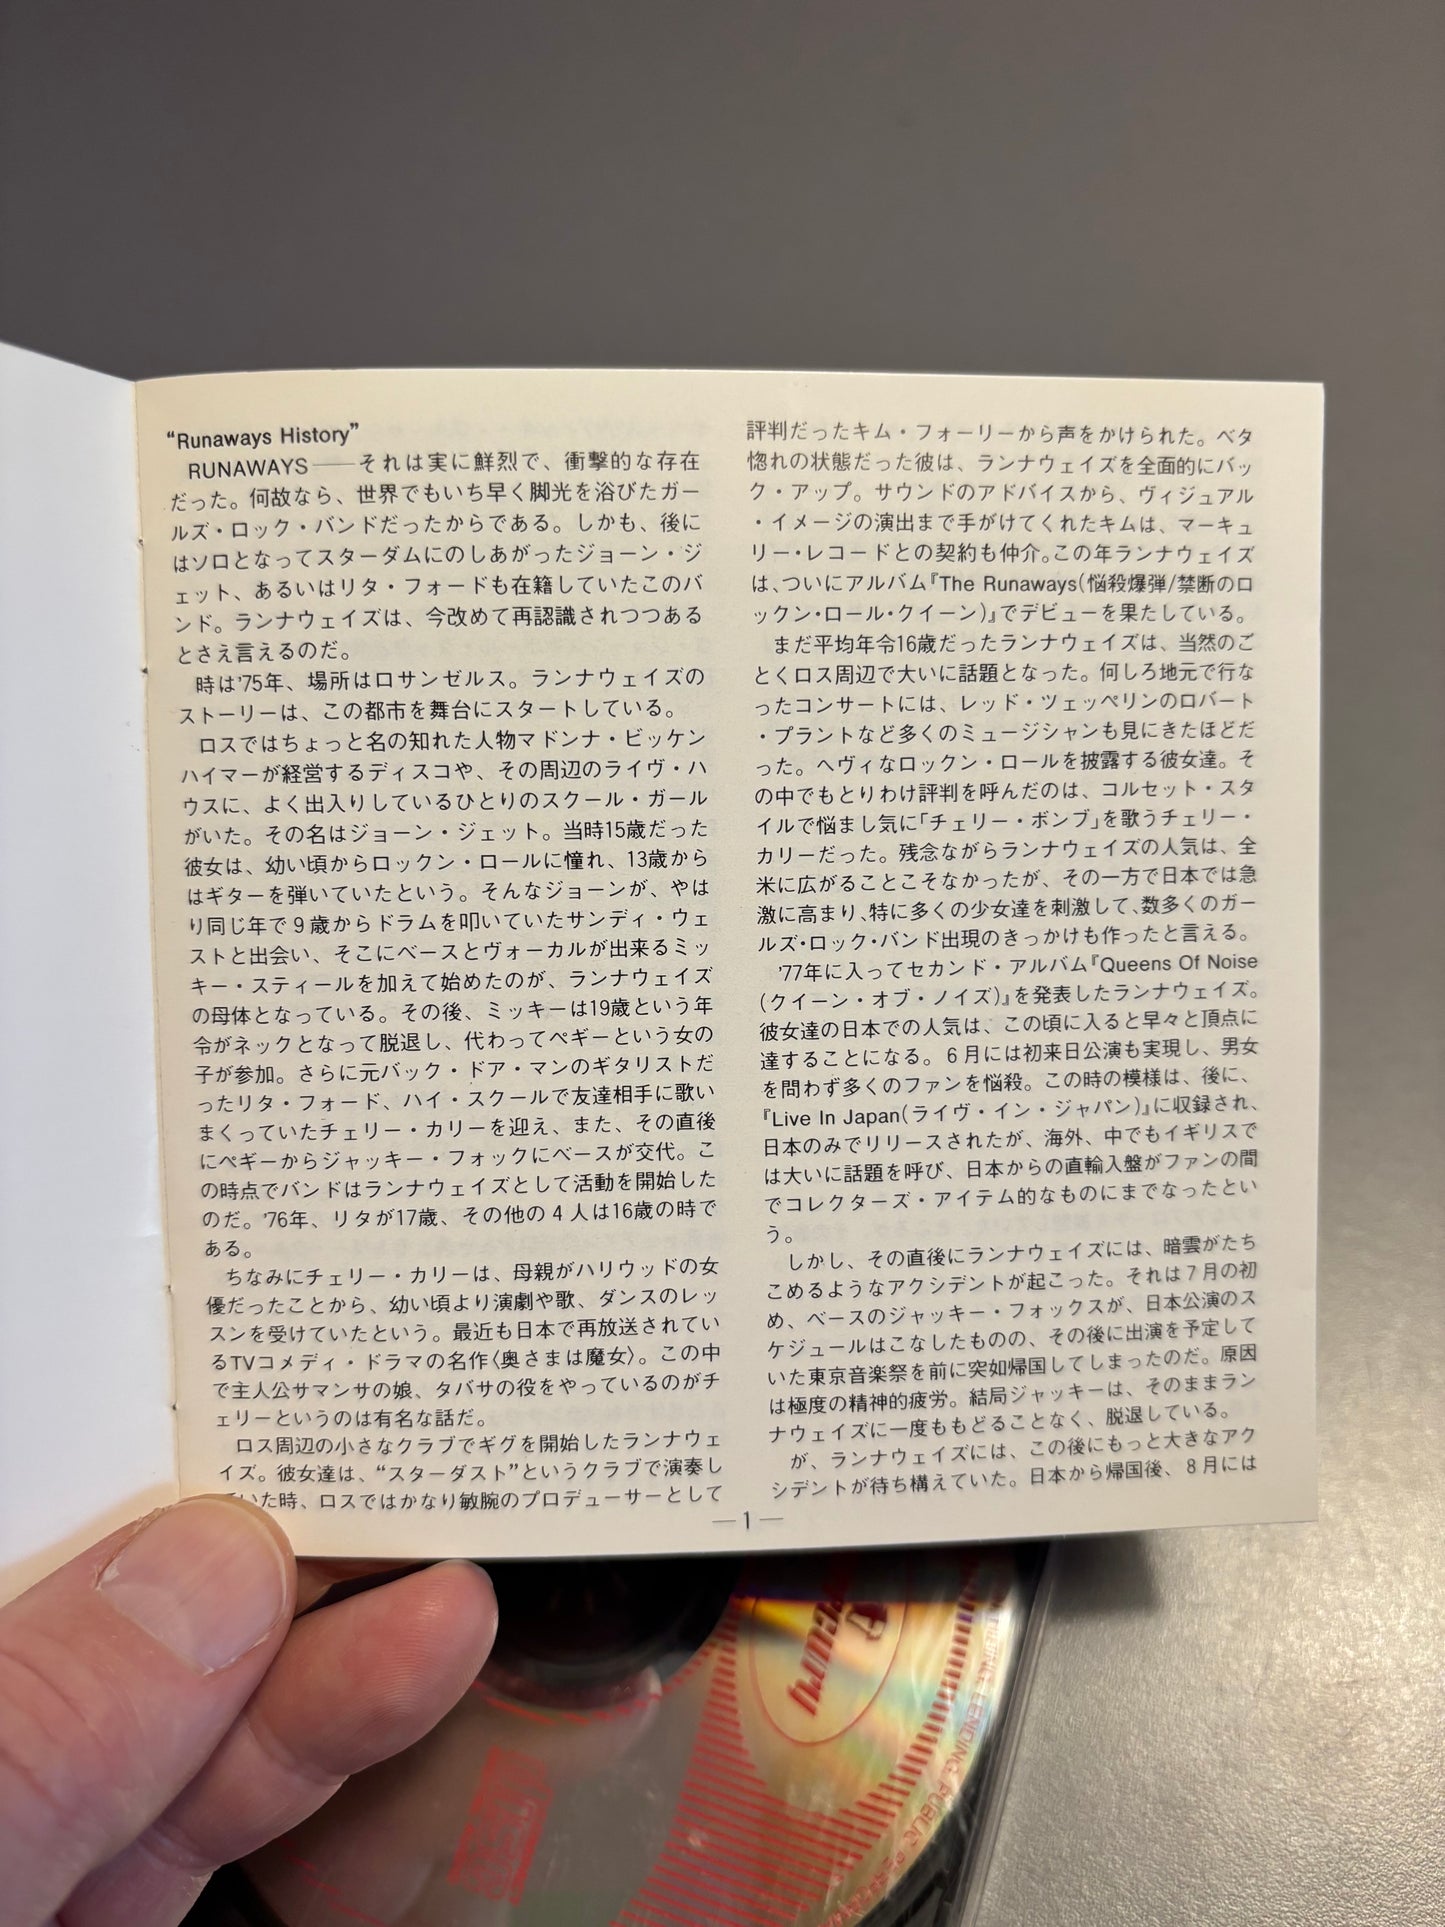 “Runaways History”
RUNAWAYS――それは実に鮮烈で、衝撃的な存在
だった。何故なら、世界でもいち早く脚光を浴びたガー
ルズ・ロック・バンドだったからである。しかも、後に
はソロとなってスターダムにのしあがったジョーン・ジ
ェット、あるいはリタ・フォードも在籍していたこのバ
ンド。ランナウェイズは、今改めて再認識されつつある
とさえ言えるのだ。
時は’75年、場所はロサンゼルス。ランナウェイズの
ストーリーは、この都市を舞台にスタートしている。
ロスではちょっと名の知れた人物マドンナ・ビッケン
ハイマーが経営するディスコや、その周辺のライヴ・ハ
ウスに、よく出入りしているひとりのスクール・ガール
がいた。その名はジョーン・ジェット。当時15歳だった
彼女は、幼い頃からロックン・ロールに憧れ、13歳から
はギターを弾いていたという。そんなジョーンが、やは
り同じ年で9歳からドラムを叩いていたサンディ・ウェ
ストと出会い、そこにベースとヴォーカルが出来るミッ
キー・スティールを加えて始めたのが、ランナウェイズ
の母体となっている。その後、ミッキーは19歳という年
令がネックとなって脱退し、代わってペギーという女の
子が参加。さらに元バック・ドア・マンのギタリストだ
ったリタ・フォード、ハイ・スクールで友達相手に歌い
まくっていたチェリー・カリーを迎え、また、その直後
にペギーからジャッキー・フォックにベースが交代。こ
の時点でバンドはランナウェイズとして活動を開始した
のだ。’76年、リタが17歳、その他の4人は16歳の時で
ある。
ちなみにチェリー・カリーは、母親がハリウッドの女
優だったことから、幼い頃より演劇や歌、ダンスのレッ
スンを受けていたという。最近も日本で再放送されてい
るTVコメディ・ドラマの名作〈奥さまは魔女〉。この中
で主人公サマンサの娘、タバサの役をやっているのがチ
ェリーというのは有名な話だ。
ロス周辺の小さなクラブでギグを開始したランナウェ
イズ。彼女達は、“スターダスト”というクラブで演奏し
ていた時、ロスではかなり敏腕のプロデューサーとして
評判だったキム・フォーリーから声をかけられた。ベタ
惚れの状態だった彼は、ランナウェイズを全面的にバッ
ク・アップ。サウンドのアドバイスから、ヴィジュアル
・イメージの演出まで手がけてくれたキムは、マーキュ
リー・レコードとの契約も仲介。この年ランナウェイズ
は、ついにアルバム『The Runaways(悩殺爆弾/禁断のロ
ックン・ロール・クイーン)』でデビューを果たしている。
まだ平均年令16歳だったランナウェイズは、当然のご
とくロス周辺で大いに話題となった。何しろ地元で行な
ったコンサートには、レッド・ツェッペリンのロバート
・プラントなど多くのミュージシャンも見にきたほどだ
った。ヘヴィなロックン・ロールを披露する彼女達。そ
の中でもとりわけ評判を呼んだのは、コルセット・スタ
イルで悩まし気に「チェリー・ボンブ」を歌うチェリー・
カリーだった。残念ながらランナウェイズの人気は、全
米に広がることこそなかったが、その一方で日本では急
激に高まり、特に多くの少女達を刺激して、数多くのガー
ルズ・ロック・バンド出現のきっかけも作ったと言える。
’77年に入ってセカンド・アルバム『Queens Of Noise
(クイーン・オブ・ノイズ)』を発表したランナウェイズ。
彼女達の日本での人気は、この頃に入ると早々と頂点に
達することになる。6月には初来日公演も実現し、男女
を問わず多くのファンを悩殺。この時の模様は、後に、
『Live In Japan(ライヴ・イン・ジャパン)』に収録され、
日本のみでリリースされたが、海外、中でもイギリスで
は大いに話題を呼び、日本からの直輸入盤がファンの間
でコレクターズ・アイテム的なものにまでなったとい
う。
しかし、その直後にランナウェイズには、暗雲がたち
こめるようなアクシデントが起こった。それは7月の初
め、ベースのジャッキー・フォックスが、日本公演のス
ケジュールはこなしたものの、その後に出演を予定して
いた東京音楽祭を前に突如帰国してしまったのだ。原因
は極度の精神的疲労。結局ジャッキーは、そのままラン
ナウェイズに一度ももどることなく、脱退している。
が、ランナウェイズには、この後にもっと大きなアク
シデントが待ち構えていた。日本から帰国後、8月には
―1―
mercury
LENDING, PUBLIC